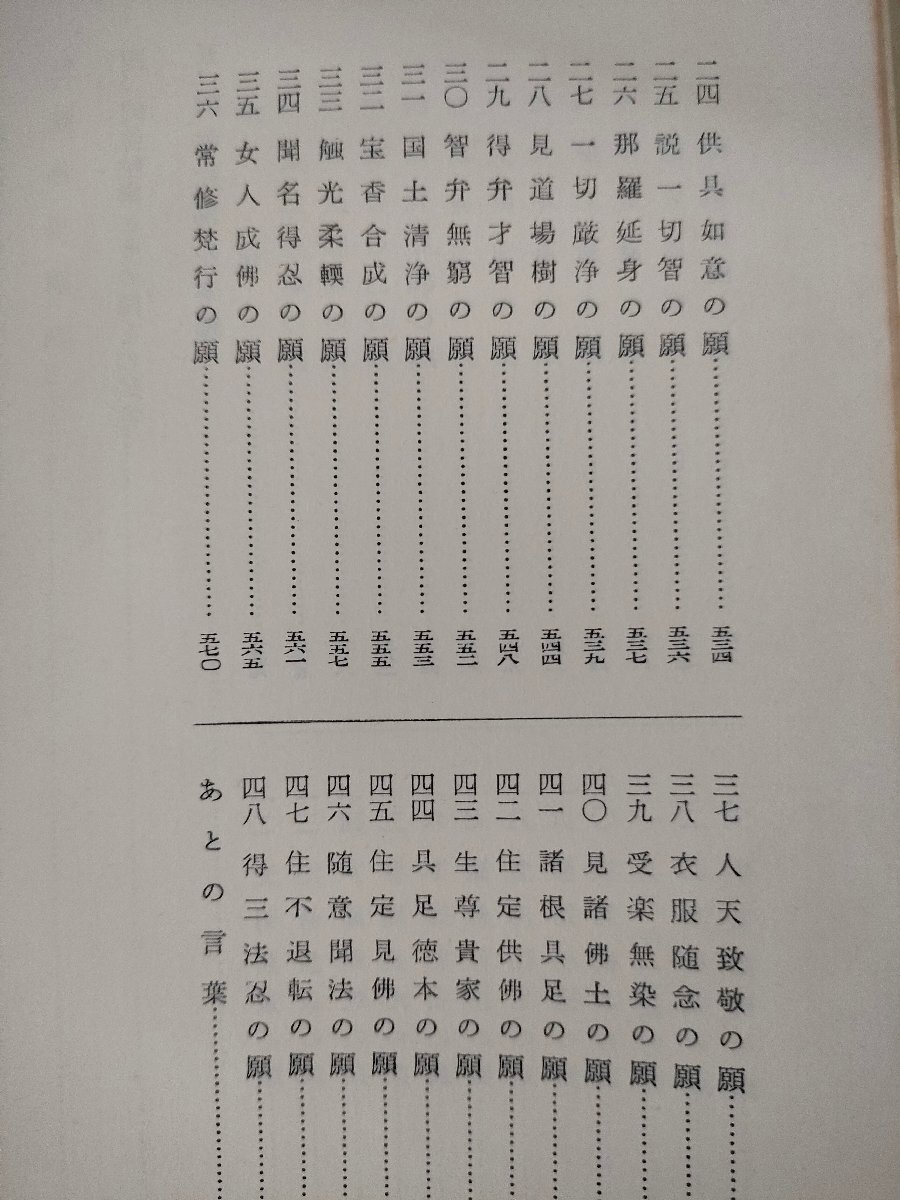 二四 供具如意の願……………………五三四
二五 説一切智の願……………………五三六
二六 那羅延身の願……………………五三七
二七 一切厳浄の願……………………五三九
二八 見道場樹の願……………………五四四
二九 得弁才智の願……………………五四八
三〇 智弁無窮の願……………………五五二
三一 国土清浄の願……………………五五三
三二 宝香合成の願……………………五五五
三三 触光柔輭の願……………………五五七
三四 聞名得忍の願……………………五六一
三五 女人成佛の願……………………五六五
三六 常修梵行の願……………………五七〇
三七 人天致敬の願……………
三八 衣服随念の願……………
三九 受楽無染の願……………
四〇 見諸佛土の願……………
四一 諸根具足の願……………
四二 住定供佛の願……………
四三 生尊貴家の願……………
四四 具足徳本の願……………
四五 住定見佛の願……………
四六 随意聞法の願……………
四七 住不退転の願……………
四八 得三法忍の願……………
あとの言葉……………………